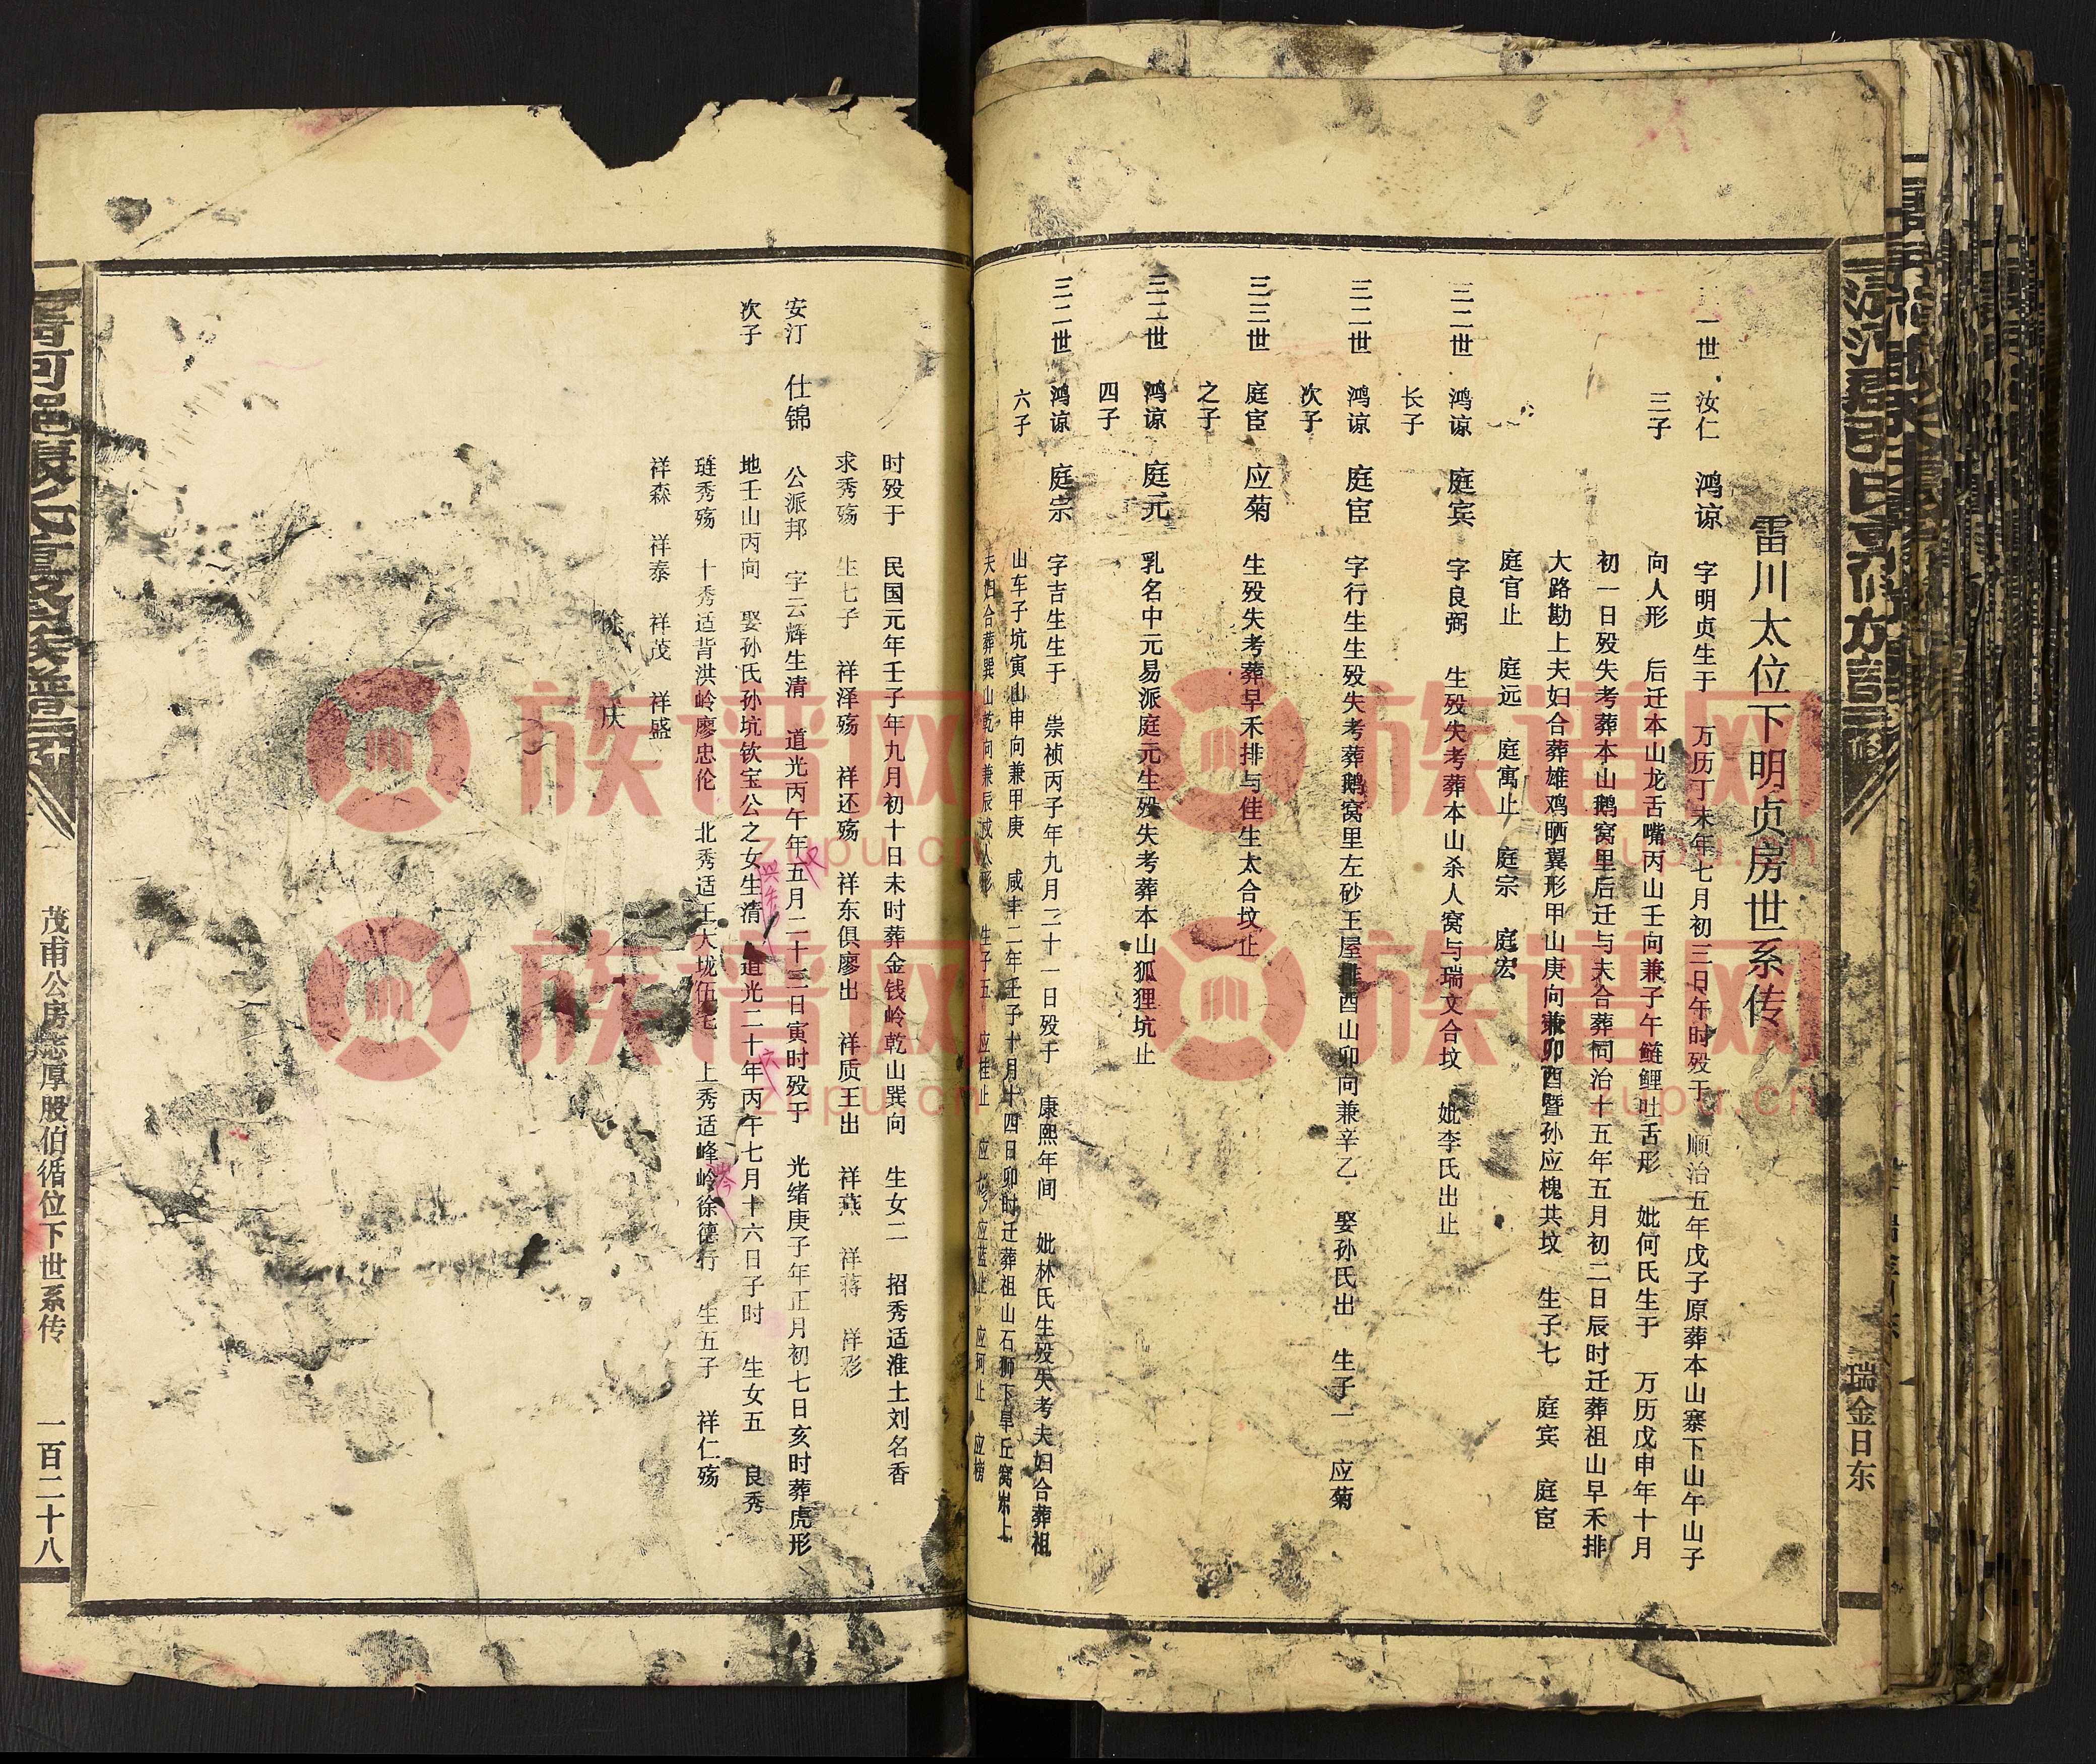 瑞金日东
雷川太位下明贞房世系传
一世 汝仁 鸿谅 字明贞生于 万历丁未年七月初三日午时殁于 顺治五年戊子原葬本山寨下山午山子
三子 向人形 后迁本山龙舌嘴丙山壬向兼子午鲢鲤吐舌形 妣何氏生于 万历戊申年十月
初一日殁失考葬本山鹅窝里后迁与夫合葬同治十五年五月初二日辰时迁葬祖山早禾排
大路勘上夫妇合葬雄鸡晒翼形甲山庚向兼卯酉暨孙应槐共坟 生子七 庭宾 庭宦
庭官止 庭远 庭寓止 庭宗 庭宏
三二世 鸿谅 庭宾 字良弼 生殁失考葬本山杀人窝与瑞文合坟 妣李氏出止
长子
三二世 鸿谅 庭宦 字行生生殁失考葬鹅窝里左砂王屋排酉山卯向兼辛乙 娶孙氏出 生子一 应菊
次子
三三世 庭宦 应菊 生殁失考葬早禾排与佳生太合坟止
之子
三二世 鸿谅 庭元 乳名中元易派庭元生殁失考葬本山狐狸坑止
四子
三二世 鸿谅 庭宗 字吉生生于 崇祯丙子年九月二十一日殁于 康熙年间 妣林氏生殁失考夫妇合葬祖
六子 山车子坑寅山申向兼甲庚 咸丰二年壬子十月十四日卯时迁葬祖山石狮下旱丘窝岽上
夫妇合葬巽山乾向兼辰戌人形 生子五 应桂止 应 应蓝止 应珂止 应榜
时殁于 民国元年壬子年九月初十日未时葬金钱岭乾山巽向 生女二 招秀适淮土刘名香
求秀殇 生七子 祥泽殇 祥还殇 祥东俱廖出 祥质王出 祥燕 祥蒋 祥形
安汀 仕锦 公派邦 字云辉生清 道光丙午年五月二十三日寅时殁于 光绪庚子年正月初七日亥时葬虎形
次子 地壬山丙向 娶孙氏孙坑钦宝公之女生清 道光二十年丙午七月十六日子时 生女五 良秀
琏秀殇 十秀适背洪岭廖忠伦 北秀适王大垅伍 上秀适峰岭徐德行 生五子 祥仁殇
祥森 祥泰 祥茂 祥盛
徐 庆
茂甫公房志厚股伯循位下世系传
一百二十八
族谱网
zupu.cn
族谱网
zupu.cn
族谱网
zupu.cn
族谱网
zupu.cn